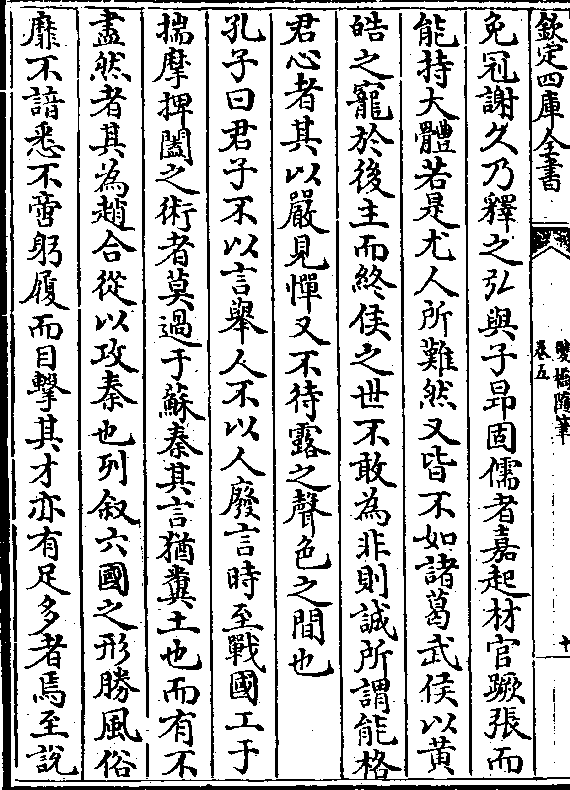 欽定四庫全書
雙橋隨筆
卷五
十
免冠謝久乃釋之弘與子昂固儒者嘉起材官蹶張而
能持大體若是尤人所難然又皆不如諸葛武侯以黄
皓之寵於後主而終侯之世不敢為非則誠所謂能格
君心者其以嚴見憚又不待露之聲色之間也
孔子曰君子不以言舉人不以人廢言時至戰國工于
揣摩捭闔之術者莫過于蘇秦其言猶糞土也而有不
盡然者其為趙合從以攻秦也列叙六國之形勝風俗
靡不諳悉不啻躬履而目擊其才亦有足多者焉至說